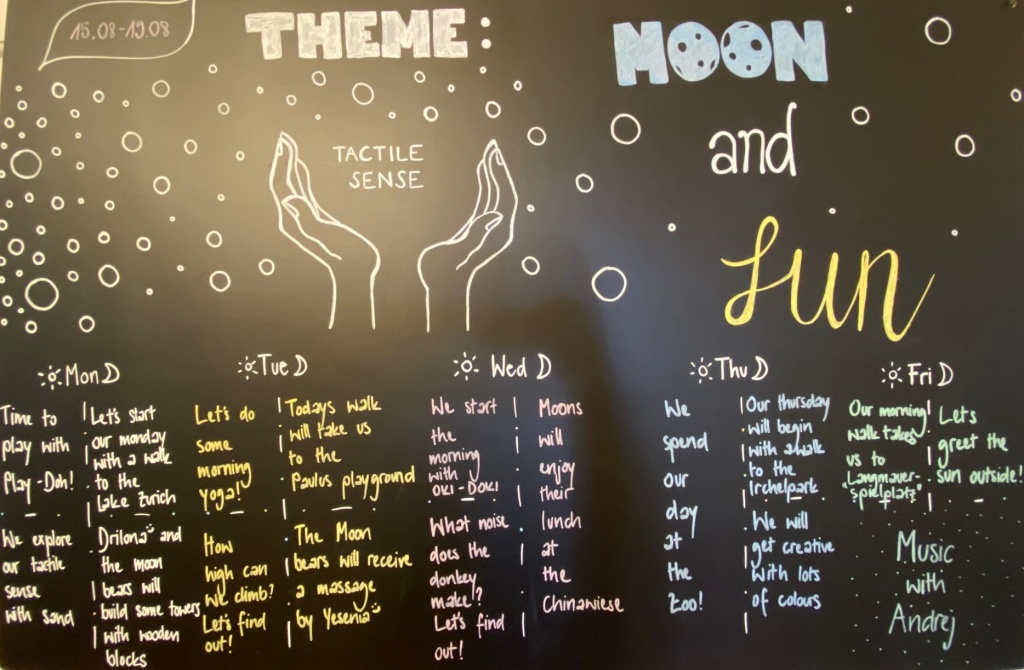 15.08-19.08
THEME:
MOON
and
Sun
TACTILE
SENSE
Mon
Time to
play with
Play-Doh!
We explore
our tactile
sense
with sand
Let's start
our monday
with a walk
to the
Lake Zurich
Drilona and
the moon
bears will
build some towers
with wooden
blocks
Tue
Let's do
some
morning
yoga!
How
high can
we climb?
Let's find
out!
Todays walk
will take us
to the
Paulus playground
The Moon
bears will receive
a massage
by Yesenia
Wed
We start
the
morning
with
OKI-DOKI
What noise
does the
donkey
make!?
Let's find
out!
Moons
will
enjoy
their
lunch
at
the
Chinawiese
Thu
We
spend
our
day
at
the
Zoo!
Our thursday
will begin
with a walk
to the
Irchelpark
We will
get creative
with lots
of colours
Fri
Our morning
walk takes
us to
"Langmauer-
spielplatz"
Lets
greet the
sun outside!
Music
with
Andrej